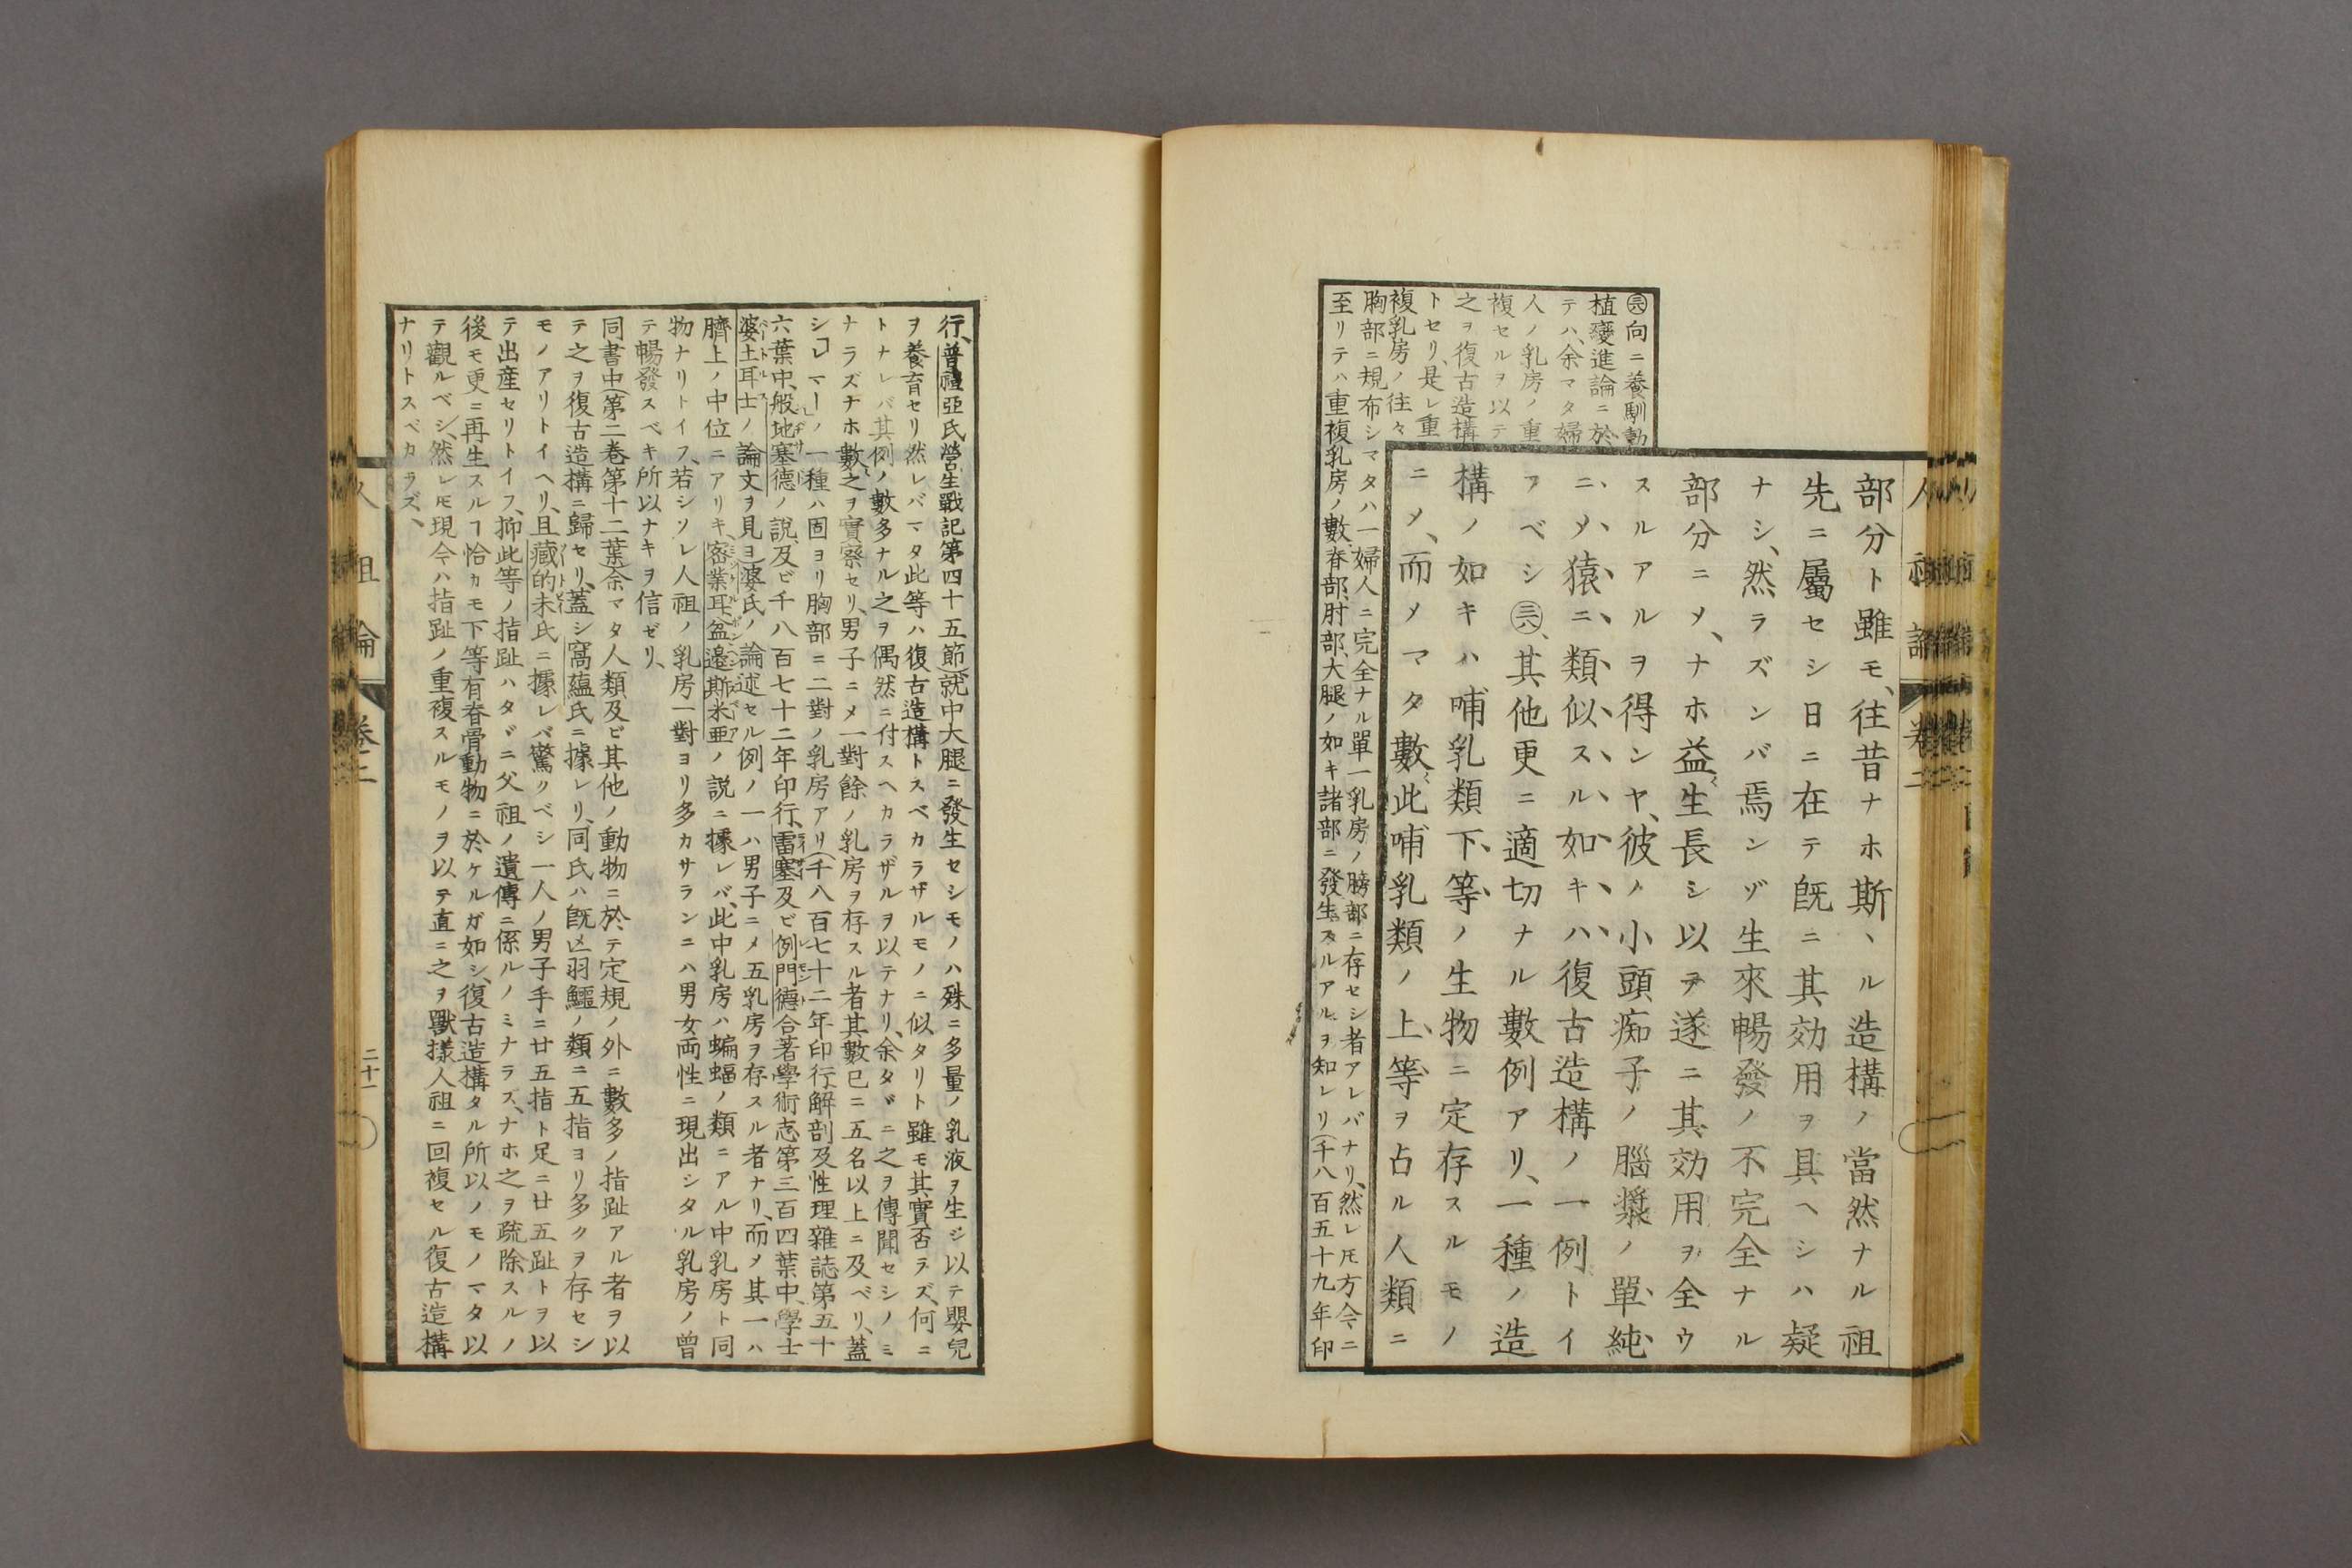 人祖論 卷二
部分ト雖モ、往昔ナホ斯ヽル造構ノ當然ナル祖
先ニ屬セシ日ニ在テ既ニ其効用ヲ具ヘシハ疑
ナシ、然ラズンバ焉ンゾ生來暢發ノ不完全ナル
部分ニメ、ナホ益〻生長シ以テ遂ニ其効用ヲ全ウ
スルアルヲ得ンヤ、彼ノ小頭痴子ノ腦漿ノ單純
ニメ、猿ニ類似スル如キハ復古造構ノ一例トイ
フベシ㊂㊅、其他更ニ適切ナル數例アリ、一種ノ造
構ノ如キハ哺乳類下等ノ生物ニ定存スルモノ
ニメ、而メマタ數〻此哺乳類ノ上等ヲ占ル人類ニ
向ニ養馴動
植變進論ニ於
テハ、余マタ婦
人ノ乳房ノ重
複セルヲ以テ
之ヲ復古造構
トセリ、是レ重
複乳房ノ往々
胸部ニ規布シマタハ一婦人ニ完全ナル單一乳房ノ膀部ニ存セシ者アレバナリ、然レ𪜈方今ニ
至リテハ重複乳房ノ數〻脊部、肘部、大腿ノ如キ諸部ニ發生スルアルヲ知レリ(千八百五十九年印
行、普禮亞氏營生戰記第四十五節)就中大腿ニ發生セシモノハ殊ニ多量ノ乳液ヲ生ジ以テ嬰兒
ヲ養育セリ然レバマタ此等ハ復古造構トスベカラザルモノニ似タリト雖モ其實否ラズ、何ニ
トナレバ其例ノ數多ナル之ヲ偶然ニ付スヘカラザルヲ以テナリ、余タヾニ之ヲ傳聞セシノミ
ナラズナホ數〻之ヲ實察セリ、男子ニメ一對餘ノ乳房ヲ存スル者其數已ニ五名以上ニ及ベリ、蓋
シ「レマー」ノ一種ハ固ヨリ胸部ニ二對ノ乳房アリ(千八百七十二年印行解剖及性理雜誌第五十
六葉中、般地塞德ノ說、及ビ千八百七十二年印行、雷塞及ビ例門德合著學術志第三百四葉中、學士
婆土耳士ノ論文ヲ見ヨ)婆氏ノ論述セル例ノ一ハ男子ニメ五乳房ヲ存スル者ナリ、而メ其一ハ
臍上ノ中位ニアリキ、密業耳、盆邉斯米亜ノ說ニ據レバ、此中乳房ハ蝙蝠ノ類ニアル中乳房ト同
物ナリトイフ、若シソレ人祖ノ乳房一對ヨリ多カサランニハ男女両性ニ現出シタル乳房ノ曽
テ暢發スベキ所以ナキヲ信ゼリ、
同書中(第二卷第十二葉)余マタ人類及ビ其他ノ動物ニ於テ定規ノ外ニ數多ノ指趾アル者ヲ以
テ之ヲ復古造構ニ歸セリ、蓋シ窩蘊氏ニ據レリ、同氏ハ既ニ羽鱷ノ類ニ五指ヨリ多クヲ存セシ
モノアリトイヘリ、且藏的未氏ニ據レバ驚クベシ一人ノ男子手ニ廿五指ト足ニ廿五趾トヲ以
テ出産セリトイフ、抑此等ノ指趾ハタヾニ父祖ノ遺傳ニ係ルノミナラズ、ナホ之ヲ疏除スルノ
後モ更ニ再生スルヿ恰カモ下等有脊骨動物ニ於ケルガ如シ、復古造構タル所以ノモノマタ以
テ觀ルベシ、然レ𪜈現今ハ指趾ノ重複スルモノヲ以テ直ニ之ヲ獸樣人祖ニ回複セル復古造構
ナリトスベカラズ、
人祖論 卷二
二十一